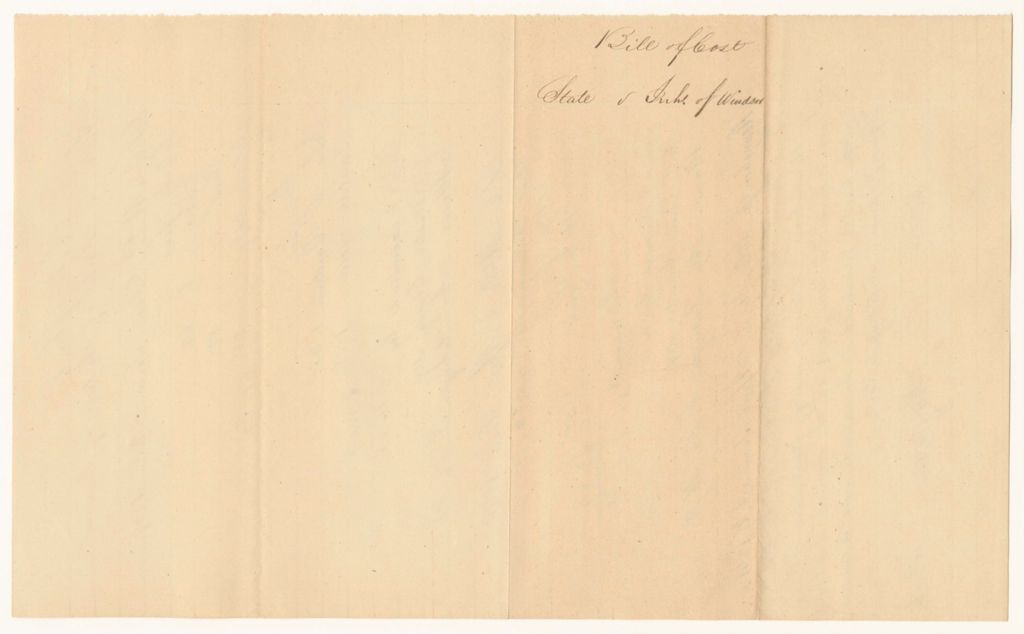 Bill of Cost
State v Inhs. of Windsor